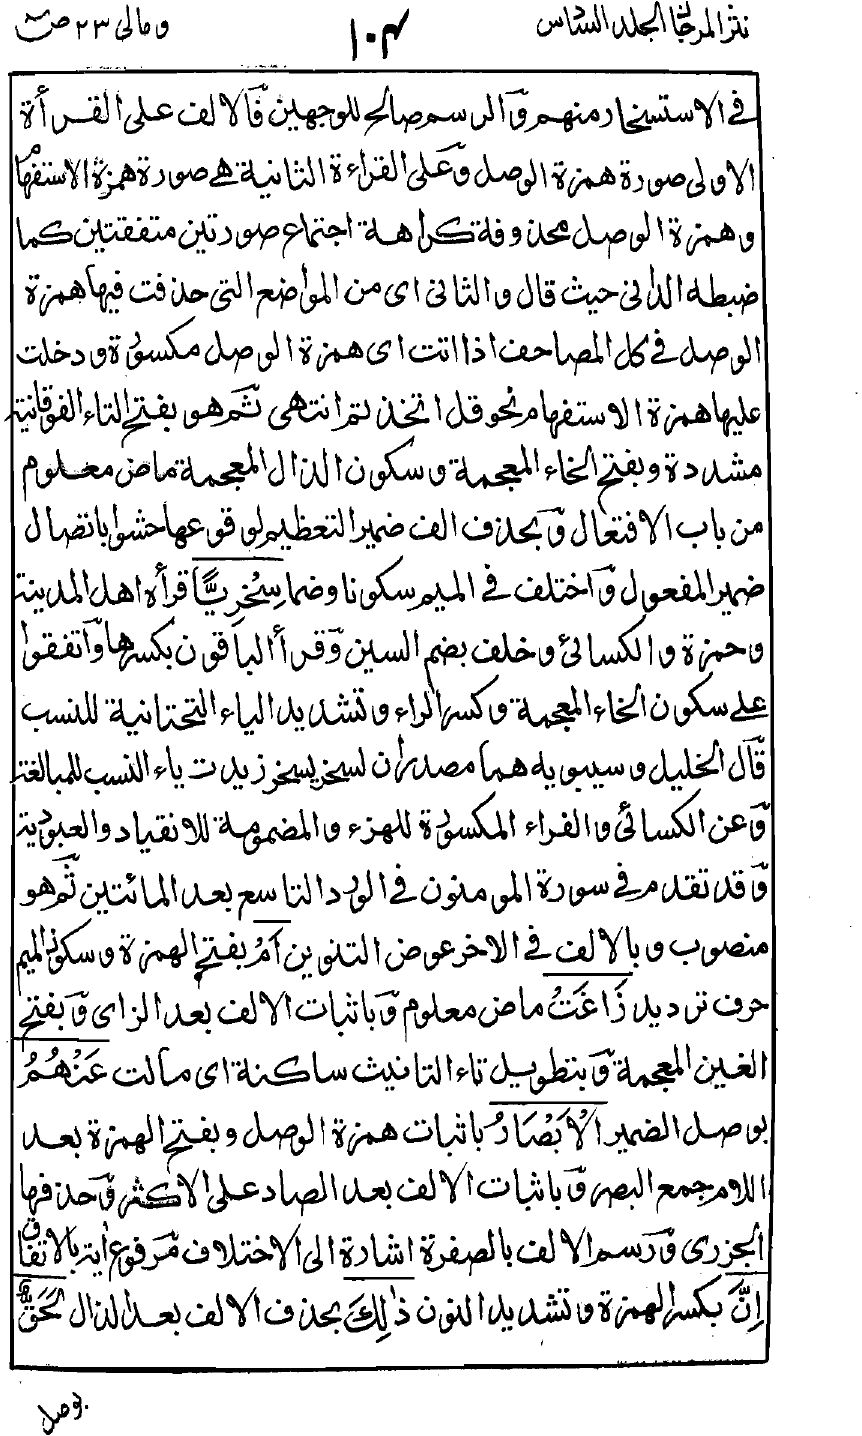 نثر المرجان الجلد السادس ١٠٤ ومالی ٢٣ ص
فی الاستسخار منهم وَالرسم صالح للوجهین فَالالف علی القرأة
الاولی صورة همزة الوصل وَعلی القراءة الثانیة هے صورة همزة الاستفهام
وهمزة الوصل محذوفة کراهة اجتماع صورتین متفقتین کما
ضبطه الدانی حیث قال والثانی ای من المواضع التی حذفت فیها همزة
الوصل فی کل المصاحف اذا اتت ای همزة الوصل مکسورة ودخلت
علیها همزة الاستفهام نحو قل اتخذتم انتهی ثم هو بفتح التاء الفوقانیة
مشددة وبفتح الخاء المعجمة وسکون الذال المعجمة ماض معلوم
من باب الافتعال وَبحذف الف ضمیر التعظیم لوقوعها حشوا باتصال
ضمیر المفعول وَاختلف فی المیم سکونا وضما سِخْرِیًّا قرأه اهل المدینة
وحمزة والکسائی وخلف بضم السین وَقرأ الباقون بکسرها وَاتفقوا
علے سکون الخاء المعجمة وکسر الراء وتشدید الیاء التحتانیة للنسب
قَال الخلیل وسیبویه هما مصدران لسخر یسخر زیدت یاء النسب للمبالغة
وَعن الکسائی والفراء المکسورة للهزء والمضمومة للانقیاد والعبودیة
وَقد تقدم فی سورة المومنون فی الورد التاسع بعد المائتین ثم هو
منصوب وبالالف فی الاخر عوض التنوین اَمْ بفتح الهمزة وسکون المیم
حرف تردید زَاغَتْ ماض معلوم وَباثبات الالف بعد الزای وَبفتح
الغین المعجمة وَبتطویل تاء التانیث ساکنة ای مالت عَنْهُمُ
بوصل الضمیر الْاَبْصَارُ باثبات همزة الوصل وبفتح الهمزة بعد
اللام جمع البصر وَباثبات الالف بعد الصاد علی الاکثر وَحذفها
الجزری وَرسم الالف بالصفرة اشارة الی الاختلاف مَرفوع اٰیة بالاتفاق
اِنَّ بکسر الهمزة وتشدید النون ذٰلِکَ بحذف الالف بعد الذال لَحَقٌّ
بوصل